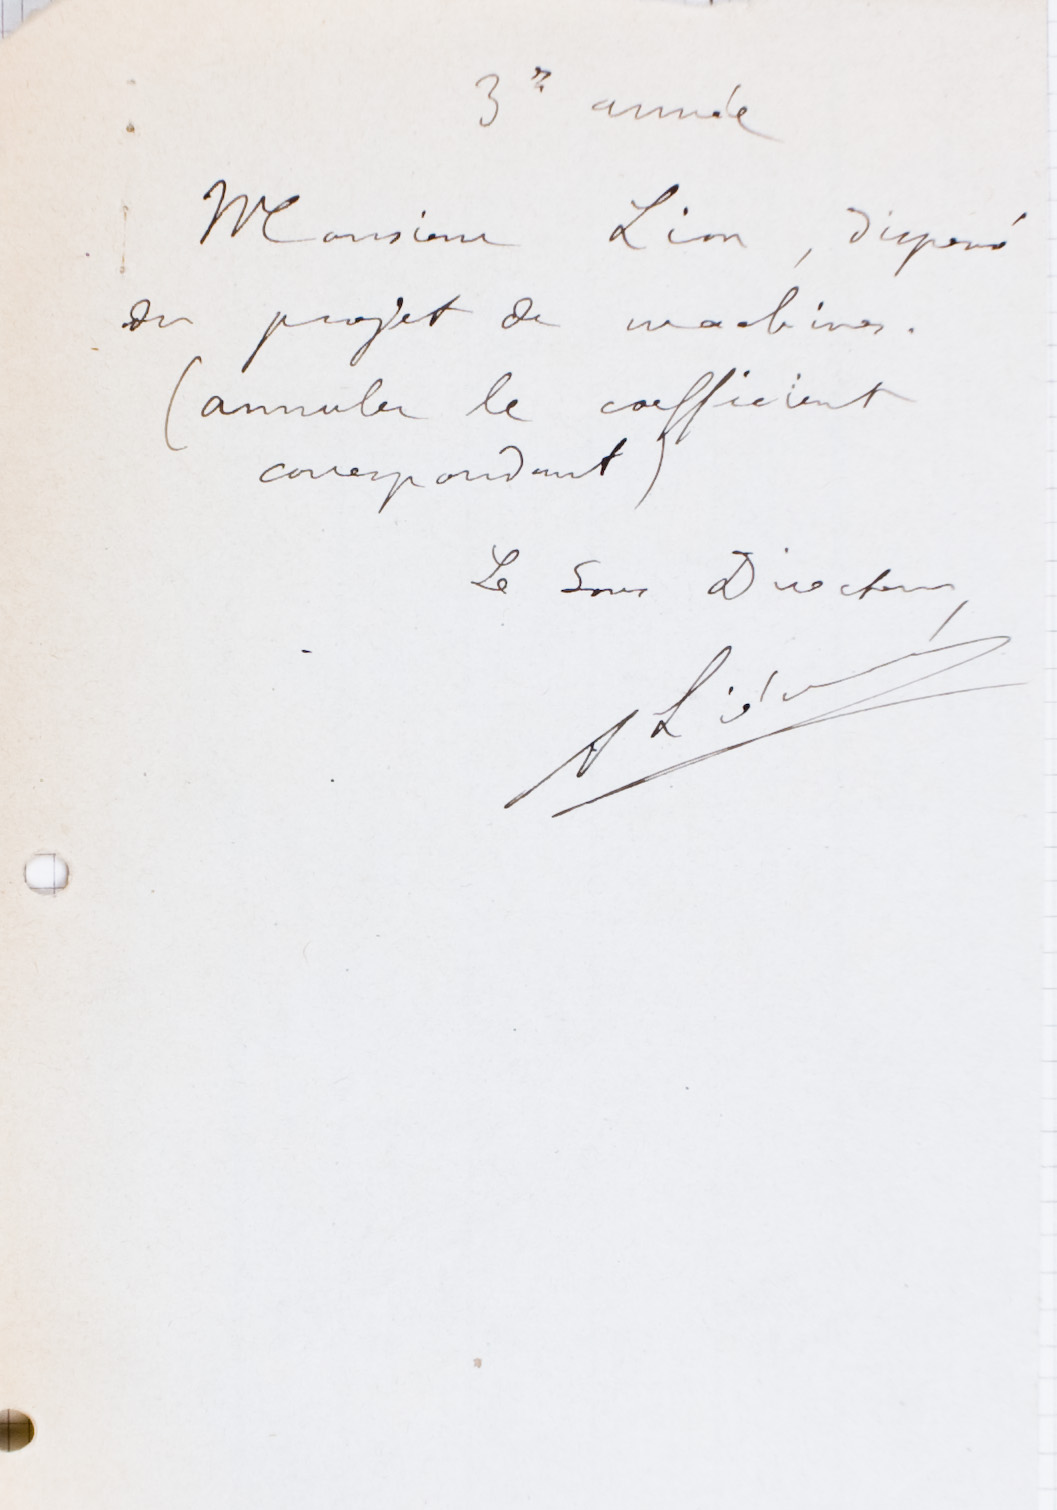 3e année
Monsieur Lion, dispensé
du projet de machines.
(annuler le coefficient
correspondant)
Le Sous Directeur,